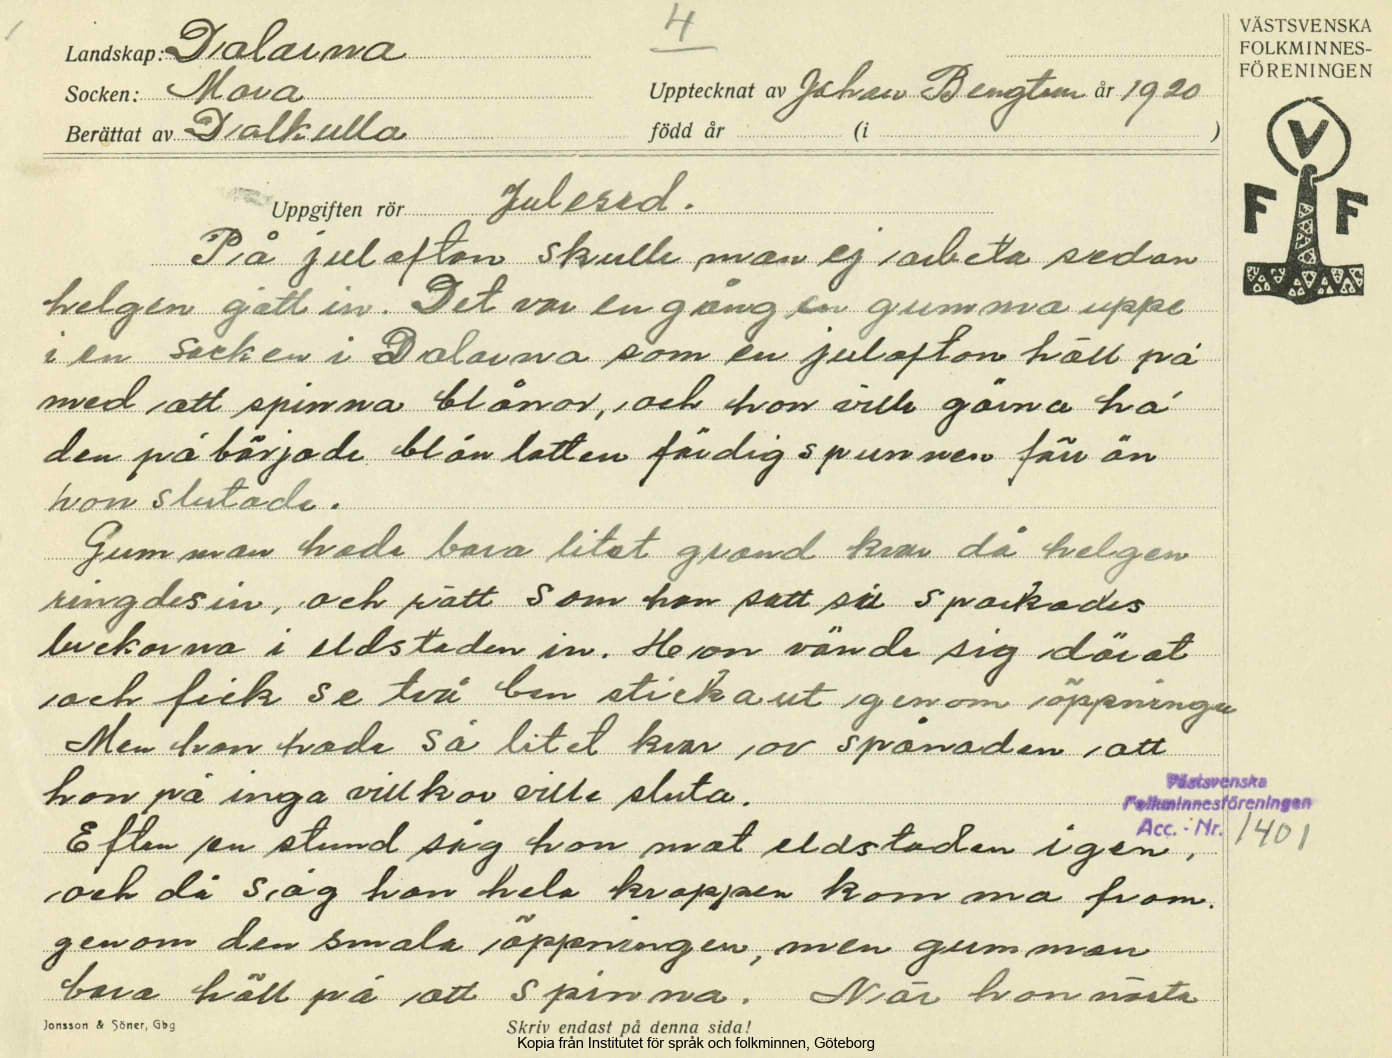 4
Landskap: Dalarna
Socken: Mora
Berättat av Dalkulla
Upptecknat av Johan Bengtson år 1920
född år (i )
VÄSTSVENSKA
FOLKMINNES-
FÖRENINGEN
V
F F
Uppgiften rör Julesed.
På julafton skulle man ej arbeta sedan
helgen gått in. Det var en gång en gumma uppe
i en socken i Dalarna som en julafton höll på
med att spinna blånor, och hon ville gärna ha
den påbörjade blånlotten färdigspunnen för än
hon slutade.
Gumman hade bara litet grand kvar då helgen
ringdes in, och rätt som hon satt så sparkades
luckorna i eldstaden in. Hon vände sig däråt
och fick se två ben sticka ut genom öppningen
Men hon hade så litet kvar av spånaden att
hon på inga villkor ville sluta.
Efter en stund såg hon mot eldstaden igen,
och då såg hon hela kroppen komma fram.
genom den smala öppningen, men gumman
bara höll på att spinna. När hon nästa
Västsvenska
Folkminnesföreningen
Acc. - Nr. 1401
Jonsson & Söner, Gbg
Skriv endast på denna sida!
Kopia från Institutet för språk och folkminnen, Göteborg